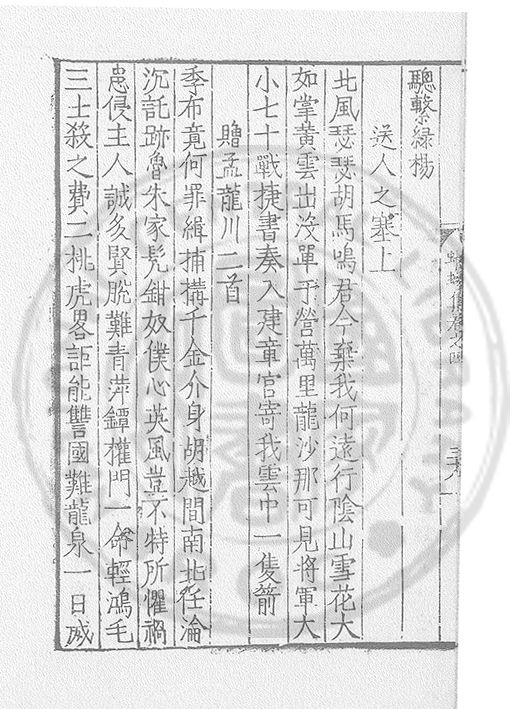 驄繫綠楊
送人之塞上
北風瑟瑟胡馬鳴君今棄我何遠行陰山雪花大
如掌黄雲出没單于營萬里龍沙那可見將軍大
小七十戰捷書奏入建章宫寄我雲中一隻箭
贈孟龍川二首
季布竟何罪緝捕搆千金介身胡越間南北任淪
沉託跡魯朱家髡鉗奴僕心英風豈不特所懼禍
患侵主人誠多賢脱難青萍鐔權門一命輕鴻毛
三士殺之費二桃虎畧詎能讐國難龍泉一日威